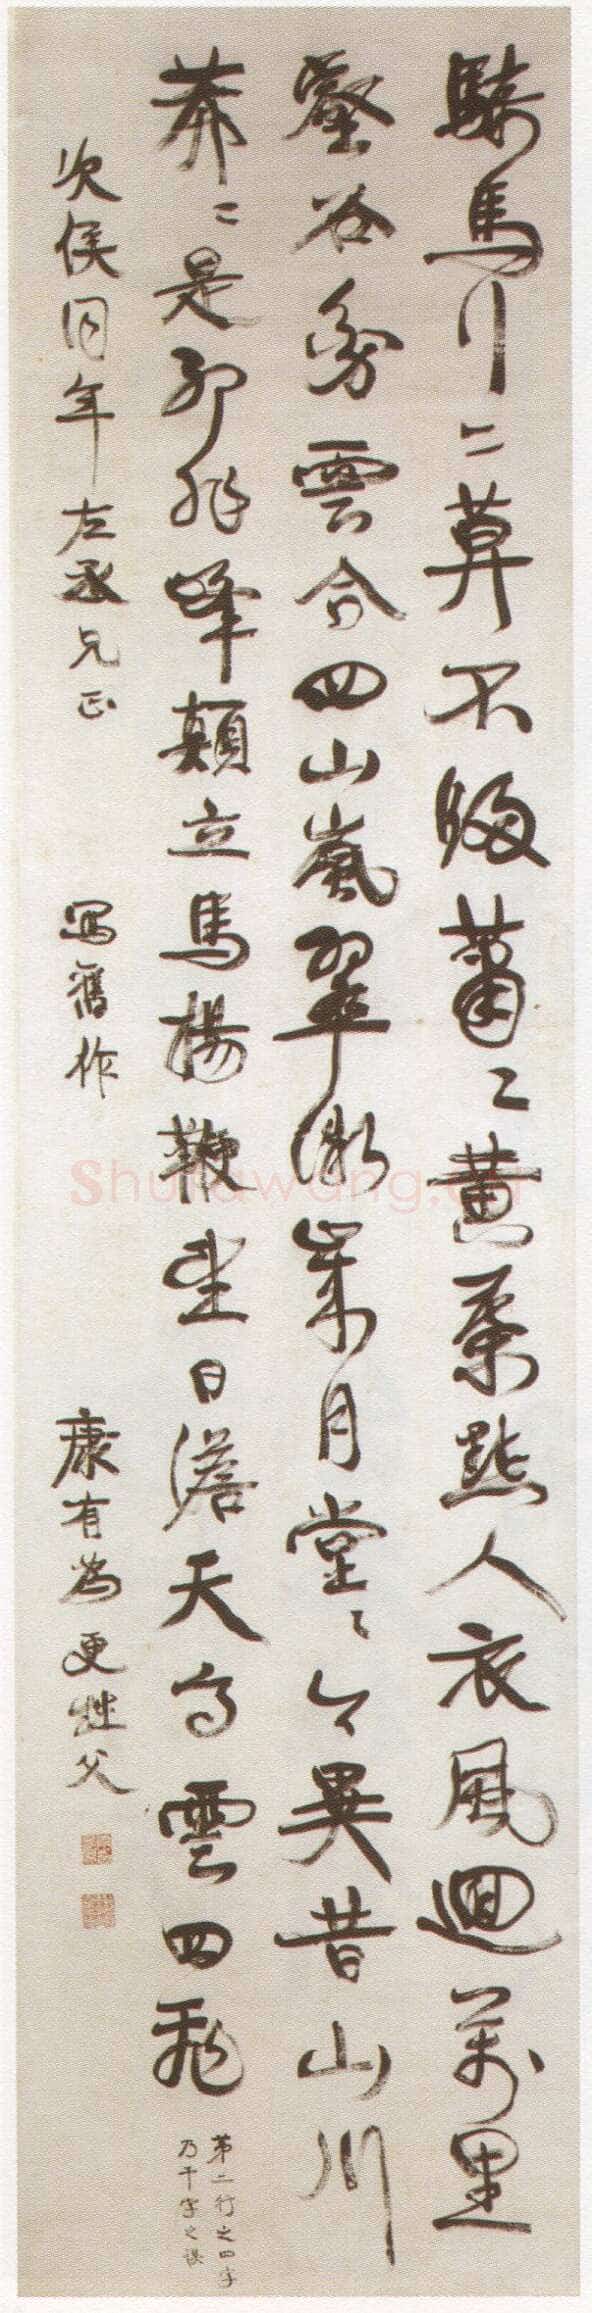 騎馬行〻暮不歸蕭〻黃葉點人衣風迴萬里
壑谷雲合四山嵐翠微歲月堂〻今異昔山川
莽〻是耶非峰顛立馬揚鞭望日澹天高雲四飛
第二行之四字
乃千字之誤
次侯同年左丞兄正 寫舊作 康有為 更甡父
Shufawang.cn